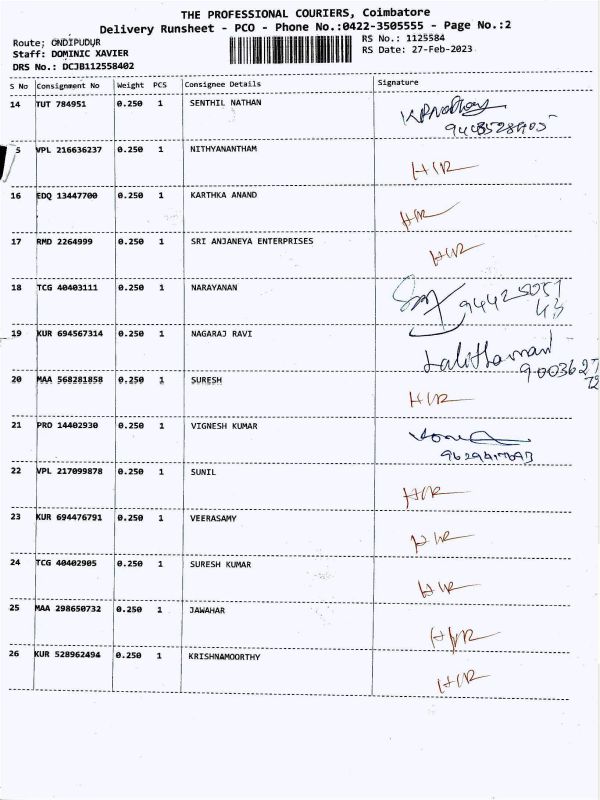 THE PROFESSIONAL COURIERS, Coimbatore
Delivery Runsheet - PCO - Phone No.:0422-3505555 - Page No.:2
Route; ONDIPUDUR
RS No.: 1125584
Staff: DOMINIC XAVIER
RS Date: 27-Feb-2023
DRS No.: DCJB112558402
S No Consignment No Weight PCS Consignee Details Signature
14 TUT 784951 0.250 1 SENTHIL NATHAN
5 VPL 216636237 0.250 1 NITHYANANTHAM HR
16 EDQ 13447700 0.250 1 KARTHKA ANAND HR
17 RMD 2264999 0.250 1 SRI ANJANEYA ENTERPRISES HR
18 TCG 40403111 0.250 1 NARAYANAN
19 KUR 694567314 0.250 1 NAGARAJ RAVI
9003627
72
20 MAA 568281858 0.250 1 SURESH HR
21 PRO 14402930 0.250 1 VIGNESH KUMAR
22 VPL 217099878 0.250 1 SUNIL HR
23 KUR 694476791 0.250 1 VEERASAMY HR
24 TCG 40402905 0.250 1 SURESH KUMAR HR
25 MAA 298650732 0.250 1 JAWAHAR HR
26 KUR 528962494 0.250 1 KRISHNAMOORTHY HR